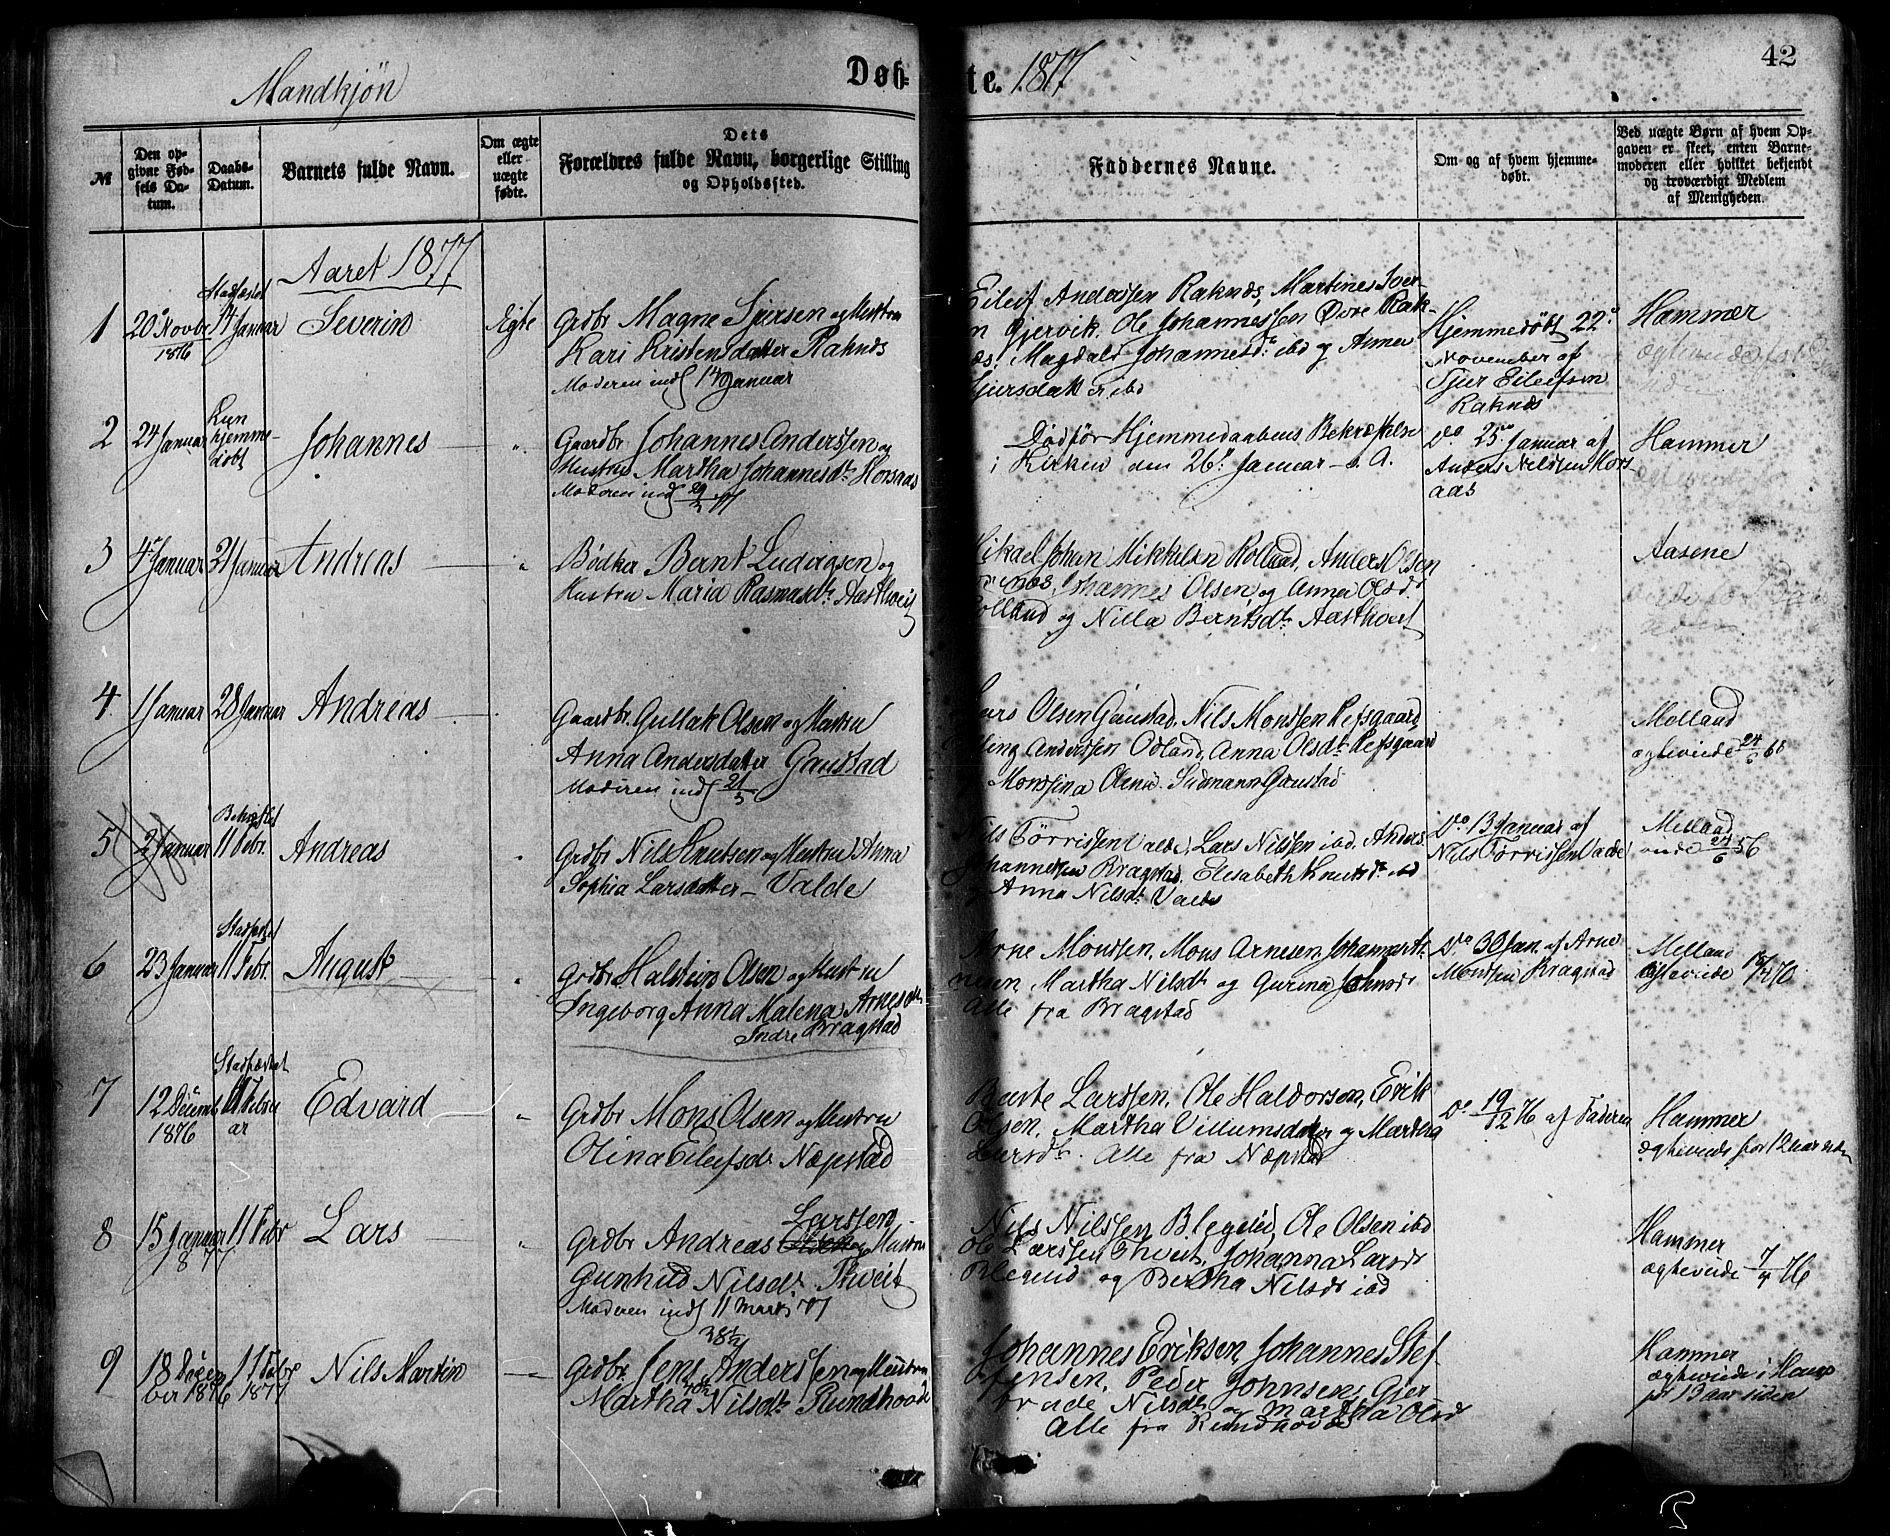 42
Mandkjøn
Døbte. 1877
№
Den opgivne Fødsels Datum.
Daabs-Datum.
Barnets fulde Navn.
Om ægte eller uægte fødte.
Dets
Forældres fulde Navn, borgerlige Stilling
og Opholdssted.
Faddernes Navne.
Om og af hvem hjemmedøbt.
Ved uægte Børn af hvem Opgaven er skeet, enten Barnemoderen eller hvilket bekjendt og troværdigt Medlem af Menigheden.
Aaret 1877
1
20 Novbr 1876
Stadfæstet 14 Januar
Severin
Egte
Grdbr Magne Sjursen og Hustru
Kari Kristensdatter Raknæs
Moderen inds 14 Januar
Eileif Anderssen Raknæs, Martines Iver-
n Gjervik, Ole Johannessen Øvre Rak-
næs, Magdali Johannesdr ibd og Anna
Sjursdatter ibd
Hjemmedøbt 22
November af
Sjur Eileifsen
Raknæs
Hammer
2
24 Januar
Kun hjemme-døbt
Johannes
Gaardbr. Johannes Anderssen og
Hustru Martha Johannesdr Horsaas
Moderen inds
Død før Hjemmedaabens Bekræftelse
i Kirken den 26 Januar
Do 25 Januar af
Anders Nilssen Hors
aas
Hammer
3
4 Januar
21 Januar
Andreas
Bødker Bernt Ludvigsen og
Hustru Maria Rasmusdr Aasthveit
Mikael Johan Mikkelsen Rolland, Anders Olsen
Johannes Olsen og Anna Olsdr
Rolland og Nilla Berntsdr Aasthveit
Aasene
4
1 Januar
28 Januar
Andreas
Gaardbr. Gullak Olsen og Hustru
Anna Andersdatter Gaustad
Moderen inds 21/3
Lars Olsen Gaustad, Nils Monssen Refsgaard
Anderssen Odland, Anna Olsdr Refsgaard
Monssina Olena Gaustad
Melland
ægteviede 24/6
5
2 Januar
Bekræftet 11 Febr.
Andreas
Grdbr Nils Knutsen og Hustru Anna
Sophia Larsdatter — Valde
Nils Tørrissen Valde, Lars Nilssen ibd. Anders
Johannessen Bragstad, Elisabeth Knutsdr ibd
Anna Nilsdr Valde
Do 13 Januar af
Nils Tørrissen Valde
Melland
viede 24/6 56
6
23 Januar
Stadfæstet 11 Febr.
August
Grdbr Halstein Olsen og Hustru
Ingeborg Anna Malena Arnesdr
Indre Bragstad
Arne Monssen, Mons Arnesen, Johannes Ar-
nesen Martha Nilsdr og Gurina Johnsdr
Alle fra Bragstad
Do 30 Jan. af Arne
Monssen Bragstad
Melland
ægteviede
7
12 Decemb 1876
Stadfæstet 11 Februar
Edvard
Grdbr Mons Olsen og Hustru
Olina Eileifsdr Næpstad
Larssen, Ole Haldorsen, Erik
Olsen, Martha Villumsdatter og Martha
Larsdr. Alle fra Næpstad
Do 19/12 76 af Faderen
Hammer
ægteviede for 12 aar siden
8
15 Januar 1877
11 Febr
Lars
Larssen
Grdbr Andreas og Hustru
Gunhild Nilsdr. Thveit
Moderen inds 11 Marts 77
Nils Nilssen Blegelid, Ole Olsen ibd
Ole Larssen Thveit, Johanna Larsdr
Blegelid og Bertha Nilsdr ibd
Hammer
ægteviede 7/4 76
9
18 December 1876
11 Febr 1877
Nils Martin
38½
Grdbr. Jens Anderssen og Hustru
Martha Nilsdr. Rundhovde
Johannes Eriksen, Johannes Stef-
fensen, Peder Johnsen, Gjer-
trude Nilsdr og Martha Olsdr
Alle fra Rundhovde
Hammer
ægteviede i Hous
for 13 aar siden